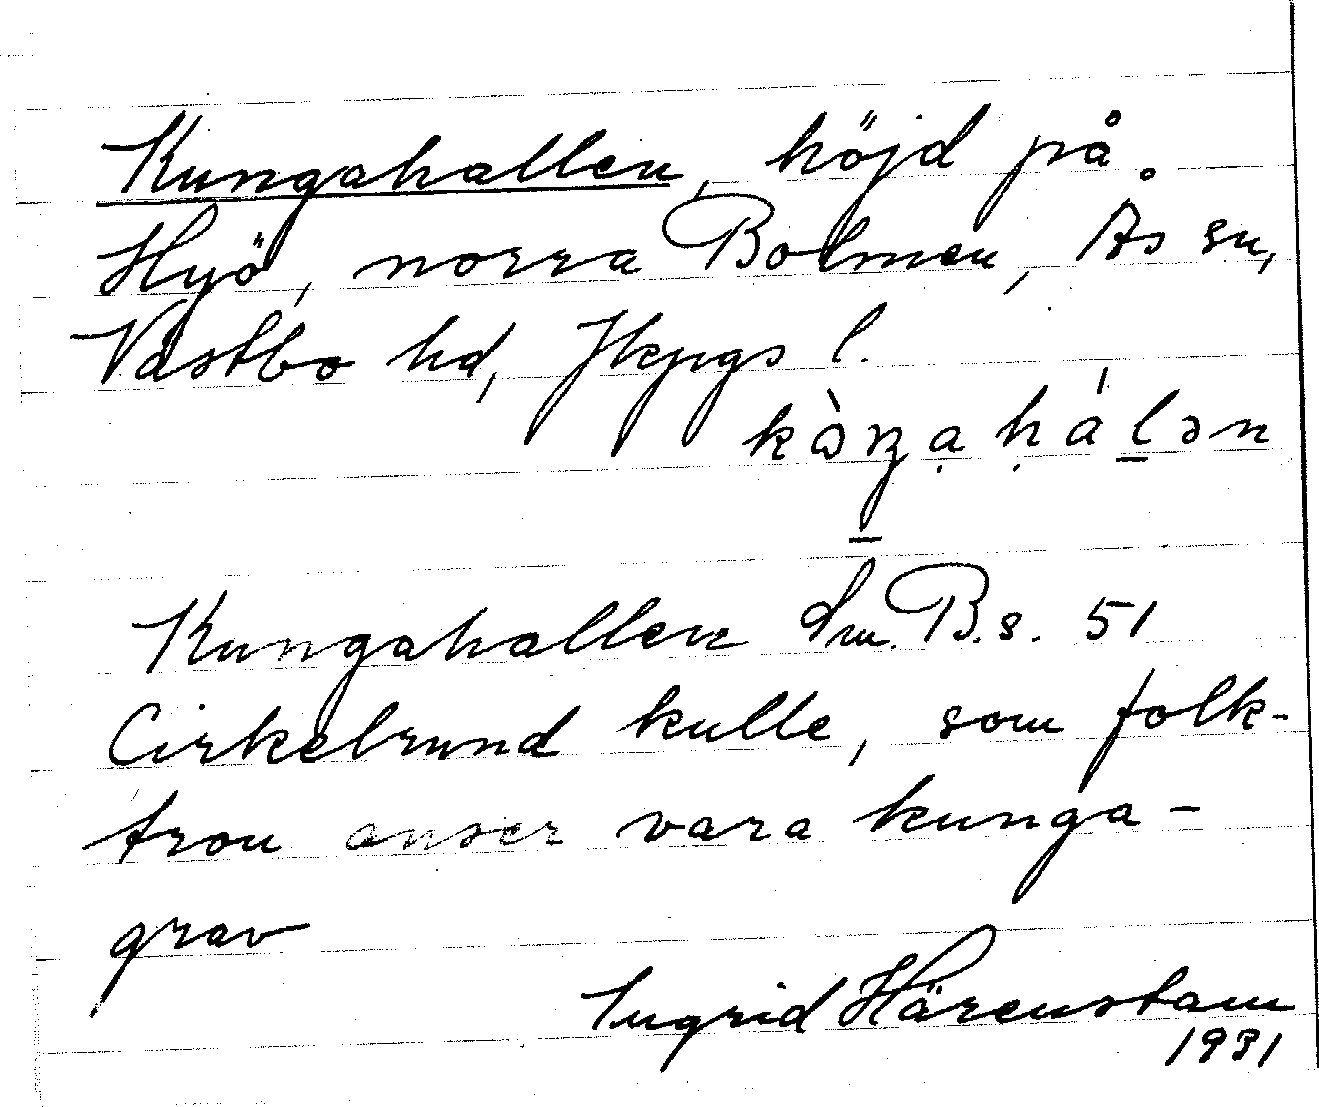 Kungahallen, höjd på
Hyö, norra Bolmen, Ås sn,
Västbo hd, Jkpgs l.
Kungahallen Sm. B. s. 51
Cirkelrund kulle, som folk-
tron anser vara kunga-
grav
Ingrid Härenstam
1931